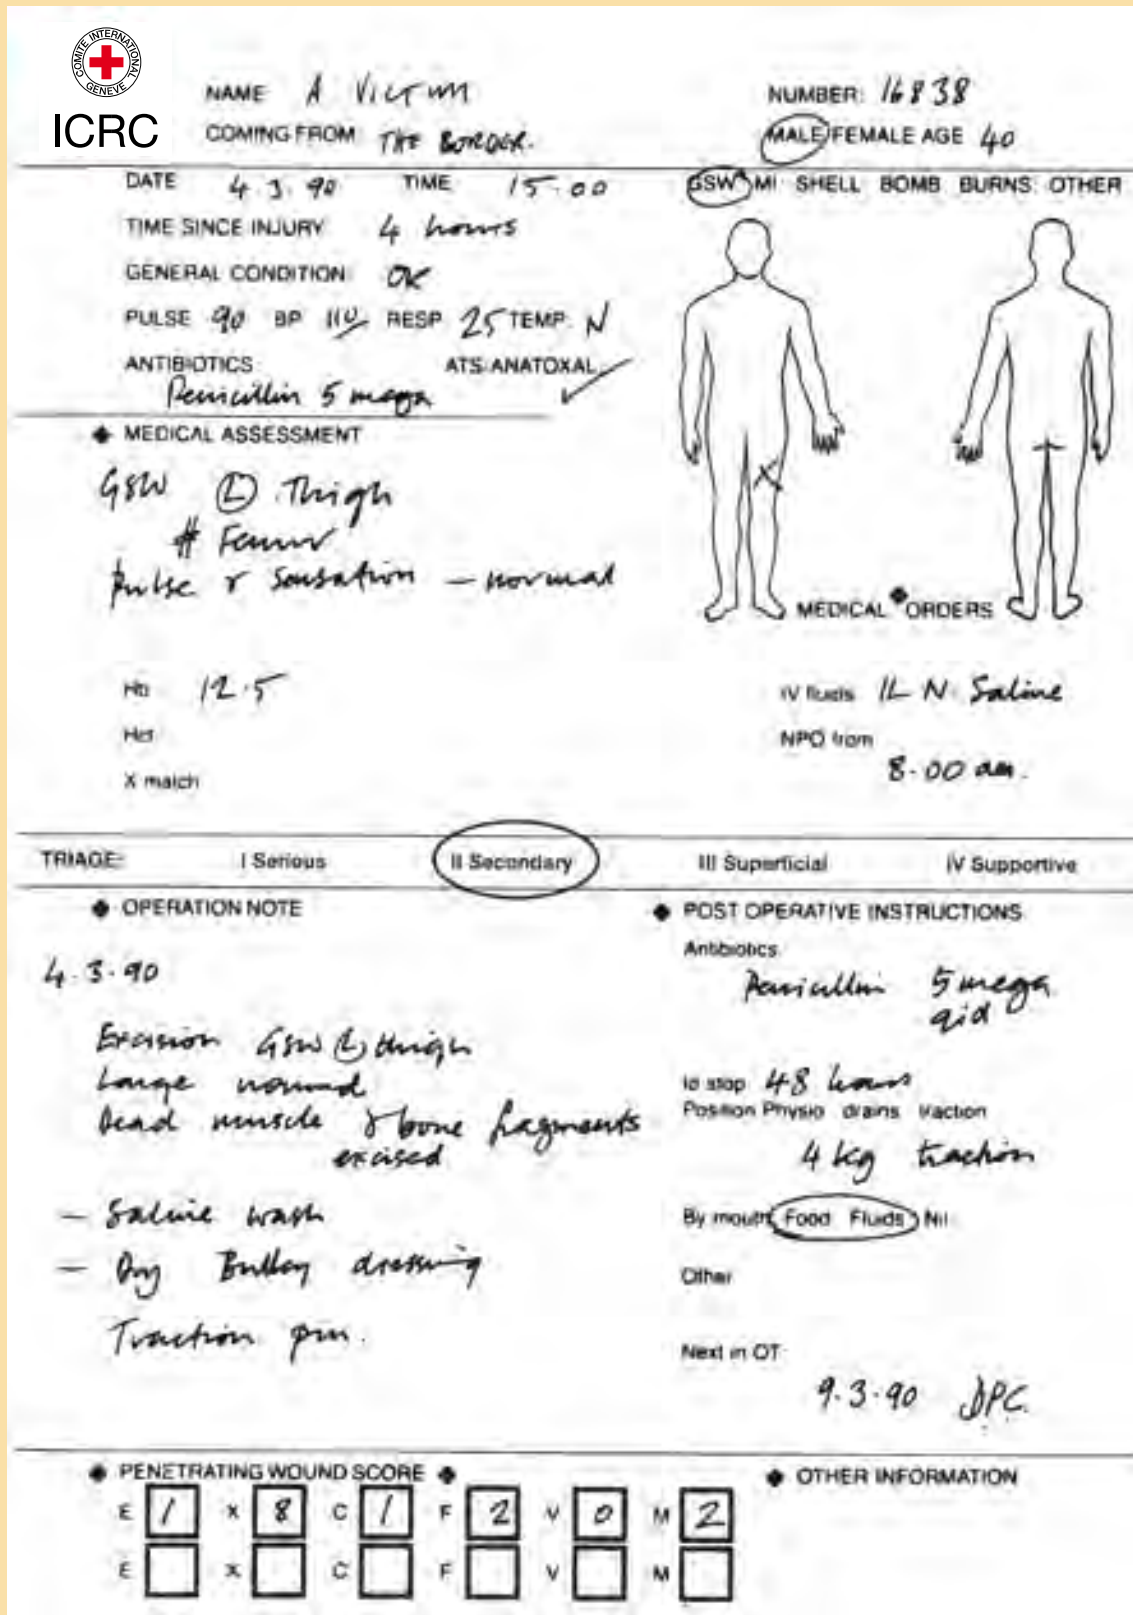 COMITE INTERNATIONAL GENEVE
ICRC
NAME A VICTIM NUMBER: 16838
COMING FROM THE BORDER. MALE/FEMALE AGE 40
DATE 4.3.90 TIME 15.00 GSW MI SHELL BOMB BURNS OTHER
TIME SINCE INJURY 4 hours
GENERAL CONDITION OK
PULSE 90 BP 110/ RESP 25 TEMP N
ANTIBIOTICS ATS/ANATOXAL ✓
Penicillin 5 mega
MEDICAL ASSESSMENT
GSW (L) Thigh
# Femur
Pulse & Sensation – normal
MEDICAL ORDERS
Hb 12.5 IV fluids 1L N. Saline
Hct NPO from
8.00 am.
X match
TRIAGE: I Serious II Secondary III Superficial IV Supportive
OPERATION NOTE
4.3.90
Excision GSW (L) thigh
Large wound
Dead muscle & bone fragments
excised
– Saline wash
– Dry Bulky dressing
Traction pin.
POST OPERATIVE INSTRUCTIONS
Antibiotics
Penicillin 5 mega
qid
to stop 48 hours
Position Physio drains traction
4 kg traction
By mouth Food Fluids Nil
Other
Next in OT
9.3.90 DPC.
PENETRATING WOUND SCORE
E 1 X 8 C 1 F 2 V 0 M 2
E X C F V M
OTHER INFORMATION